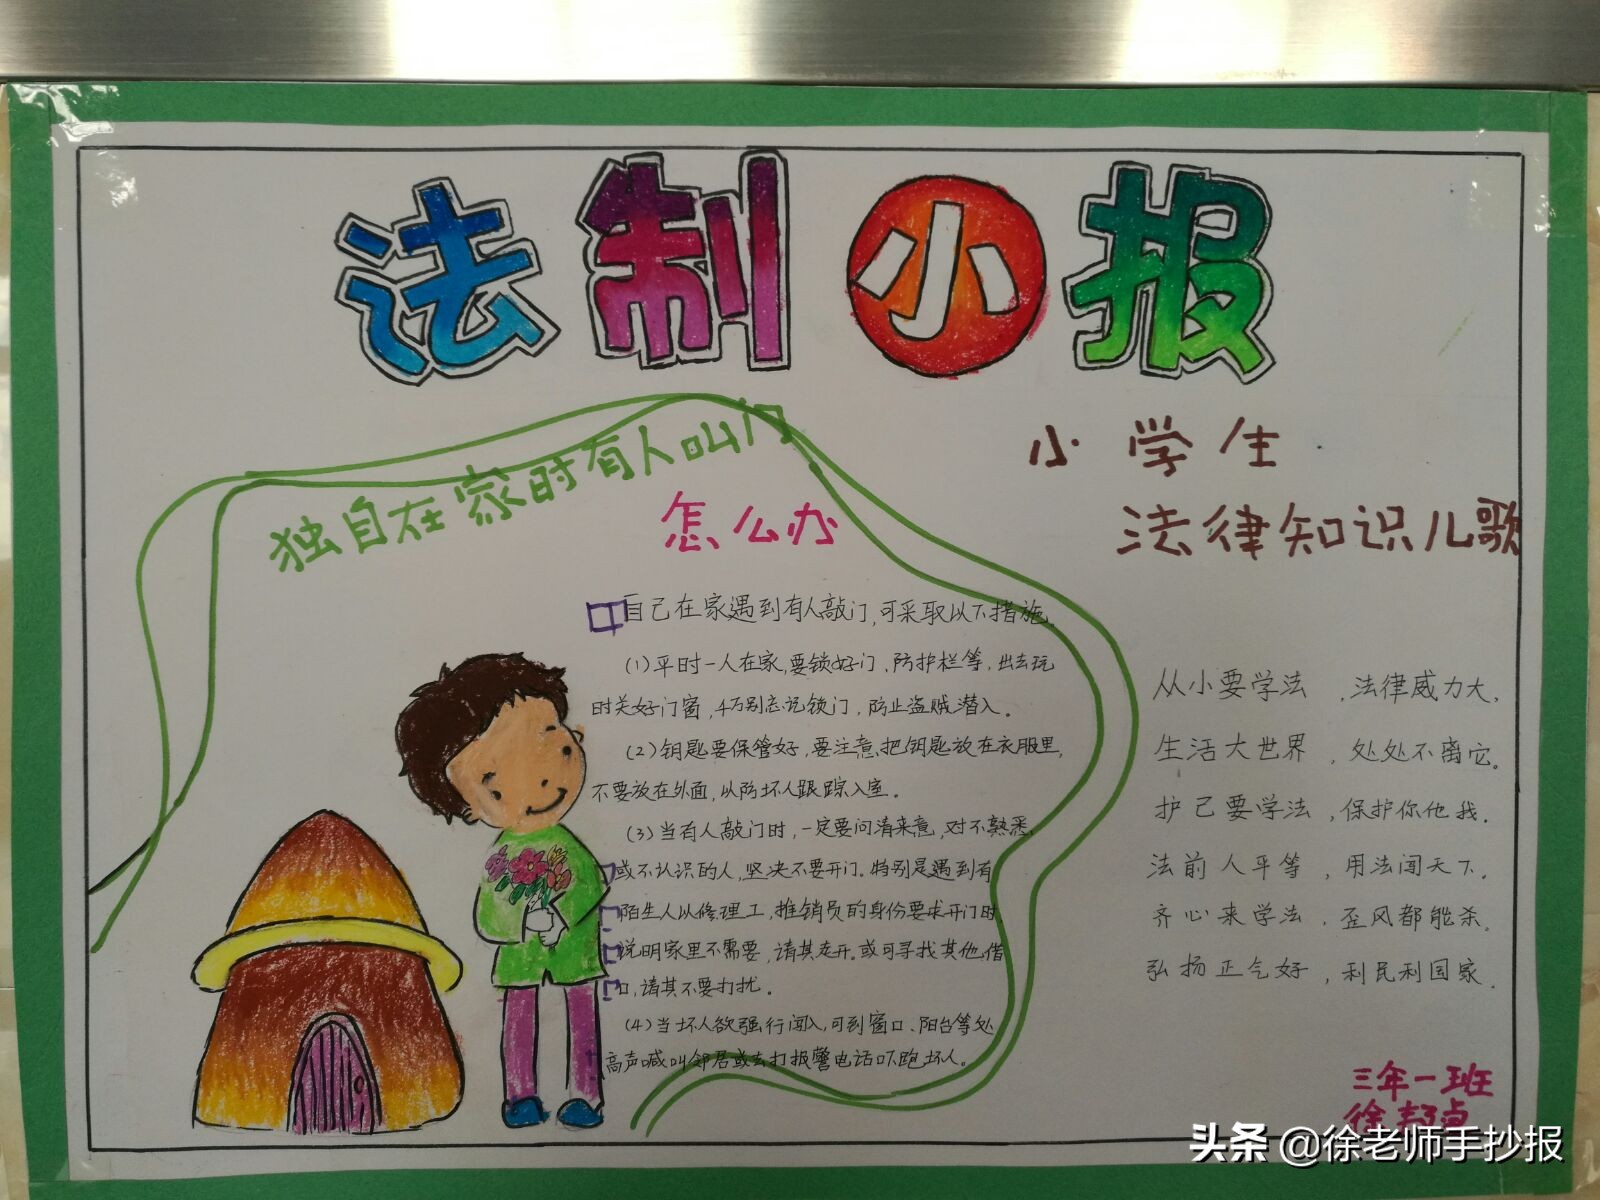 法制小报
独自在家时有人叫门
怎么办
自己在家遇到有人敲门,可采取以下措施。
(1)平时一人在家,要锁好门,防护栏等,出去玩
时关好门窗,千万别忘记锁门,防止盗贼潜入。
(2)钥匙要保管好,要注意把钥匙放在衣服里,
不要放在外面,以防坏人跟踪入室。
(3)当有人敲门时,一定要问清来意,对不熟悉
或不认识的人,坚决不要开门。特别是遇到有
陌生人以修理工,推销员的身份要求开门时
说明家里不需要,请其走开。或可寻找其他借
口,请其不要打扰。
(4)当坏人欲强行闯入,可到窗口、阳台等处
高声喊叫邻居或去打报警电话吓跑坏人。
小学生
法律知识儿歌
从小要学法,法律威力大。
生活大世界,处处不离它。
护己要学法,保护你他我。
法前人平等,用法闯天下。
齐心来学法,歪风都能杀。
弘扬正气好,利民利国家。
三年一班
徐
头条 @徐老师手抄报